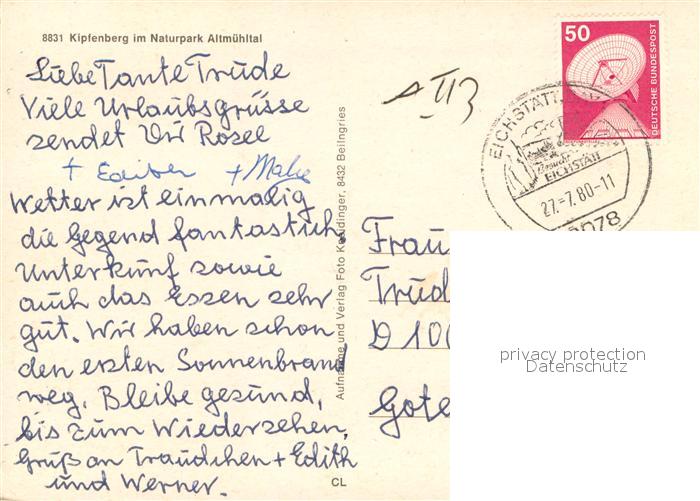 8831 Kipfenberg im Naturpark Altmühltal
Liebe Tante Trude
Viele Urlaubsgrüsse
sendet Dir Rosel
+ +
Wetter ist einmalig
die Gegend fantastich,
Unterkunf sowie
auch das Essen sehr
gut. Wir haben schon
den ersten Sonnenbrand
weg. Bleibe gesund,
bis zum Wiedersehen.
Gruß an Traudchen + Edith
und Werner.
Aufnahme und Verlag Foto 8432 Beilngries
CL
50
DEUTSCHE BUNDESPOST
EICHSTÄTT
EICHSTÄTT
27.-7.80-11
8078
Frau
Trud
D 100
Gote
privacy protection
Datenschutz